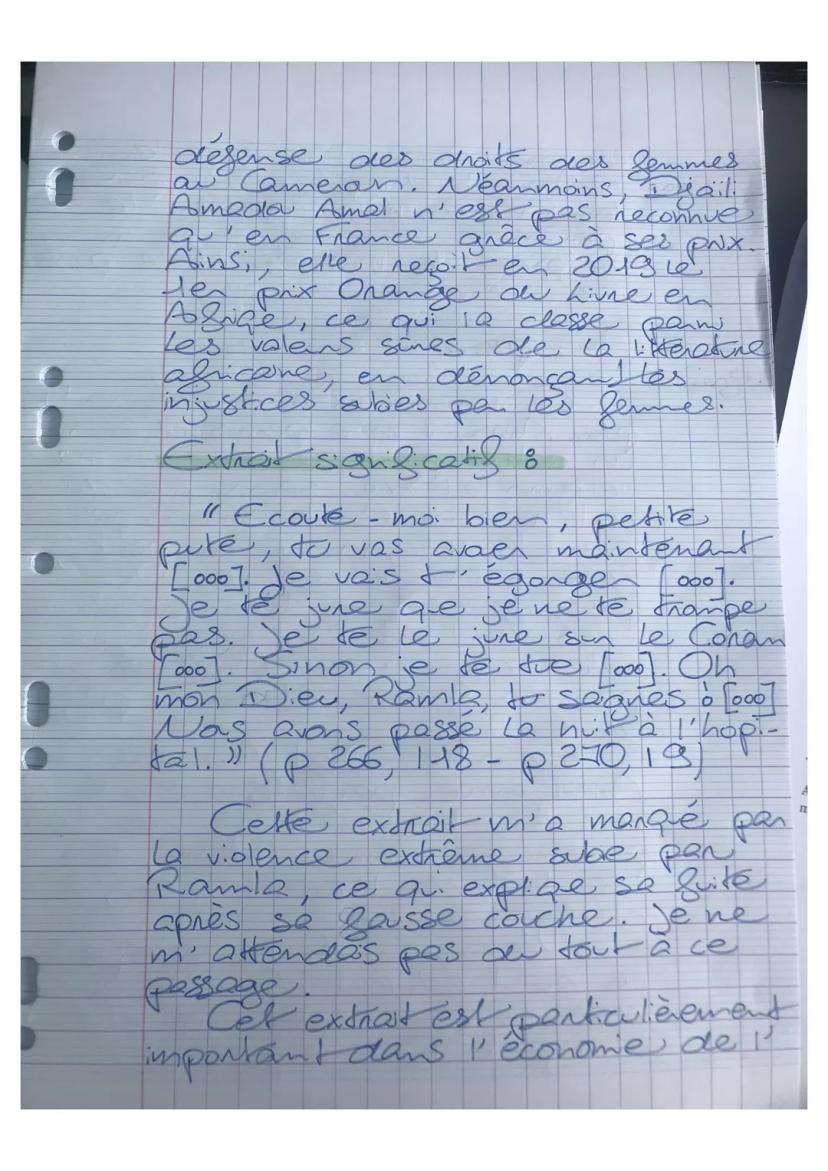 défense des droits des femmes
au Cameroun. Néanmoins, Djaïli
Amadou Amal n'est pas reconnue
qu'en France grâce à ses prix.
Ainsi, elle reçoit en 2019 le
1er prix Orange du Livre en
Afrique, ce qui la classe parmi
les valeurs sûres de la littérature
africaine, en dénonçant les
injustices subies par les femmes.
Extrait significatif :
" Ecoute-moi bien, petite
pute, tu vas avouer maintenant
[...]. Je vais t'égorger [...].
Je te jure que je ne te trompe
pas. Je te le jure sur le Coran
[...]. Sinon je te tue [...]. Oh
mon Dieu, Ramla, tu saignes ! [...]
Nous avons passé la nuit à l'hôpi-
tal. " (p 266, l 18 - p 270, l 9)
Cette extrait m'a marqué par
la violence extrême subie par
Ramla, ce qui explique sa fuite
après sa fausse couche. Je ne
m'attendais pas du tout à ce
passage.
Cet extrait est particulièrement
important dans l'économie de l'